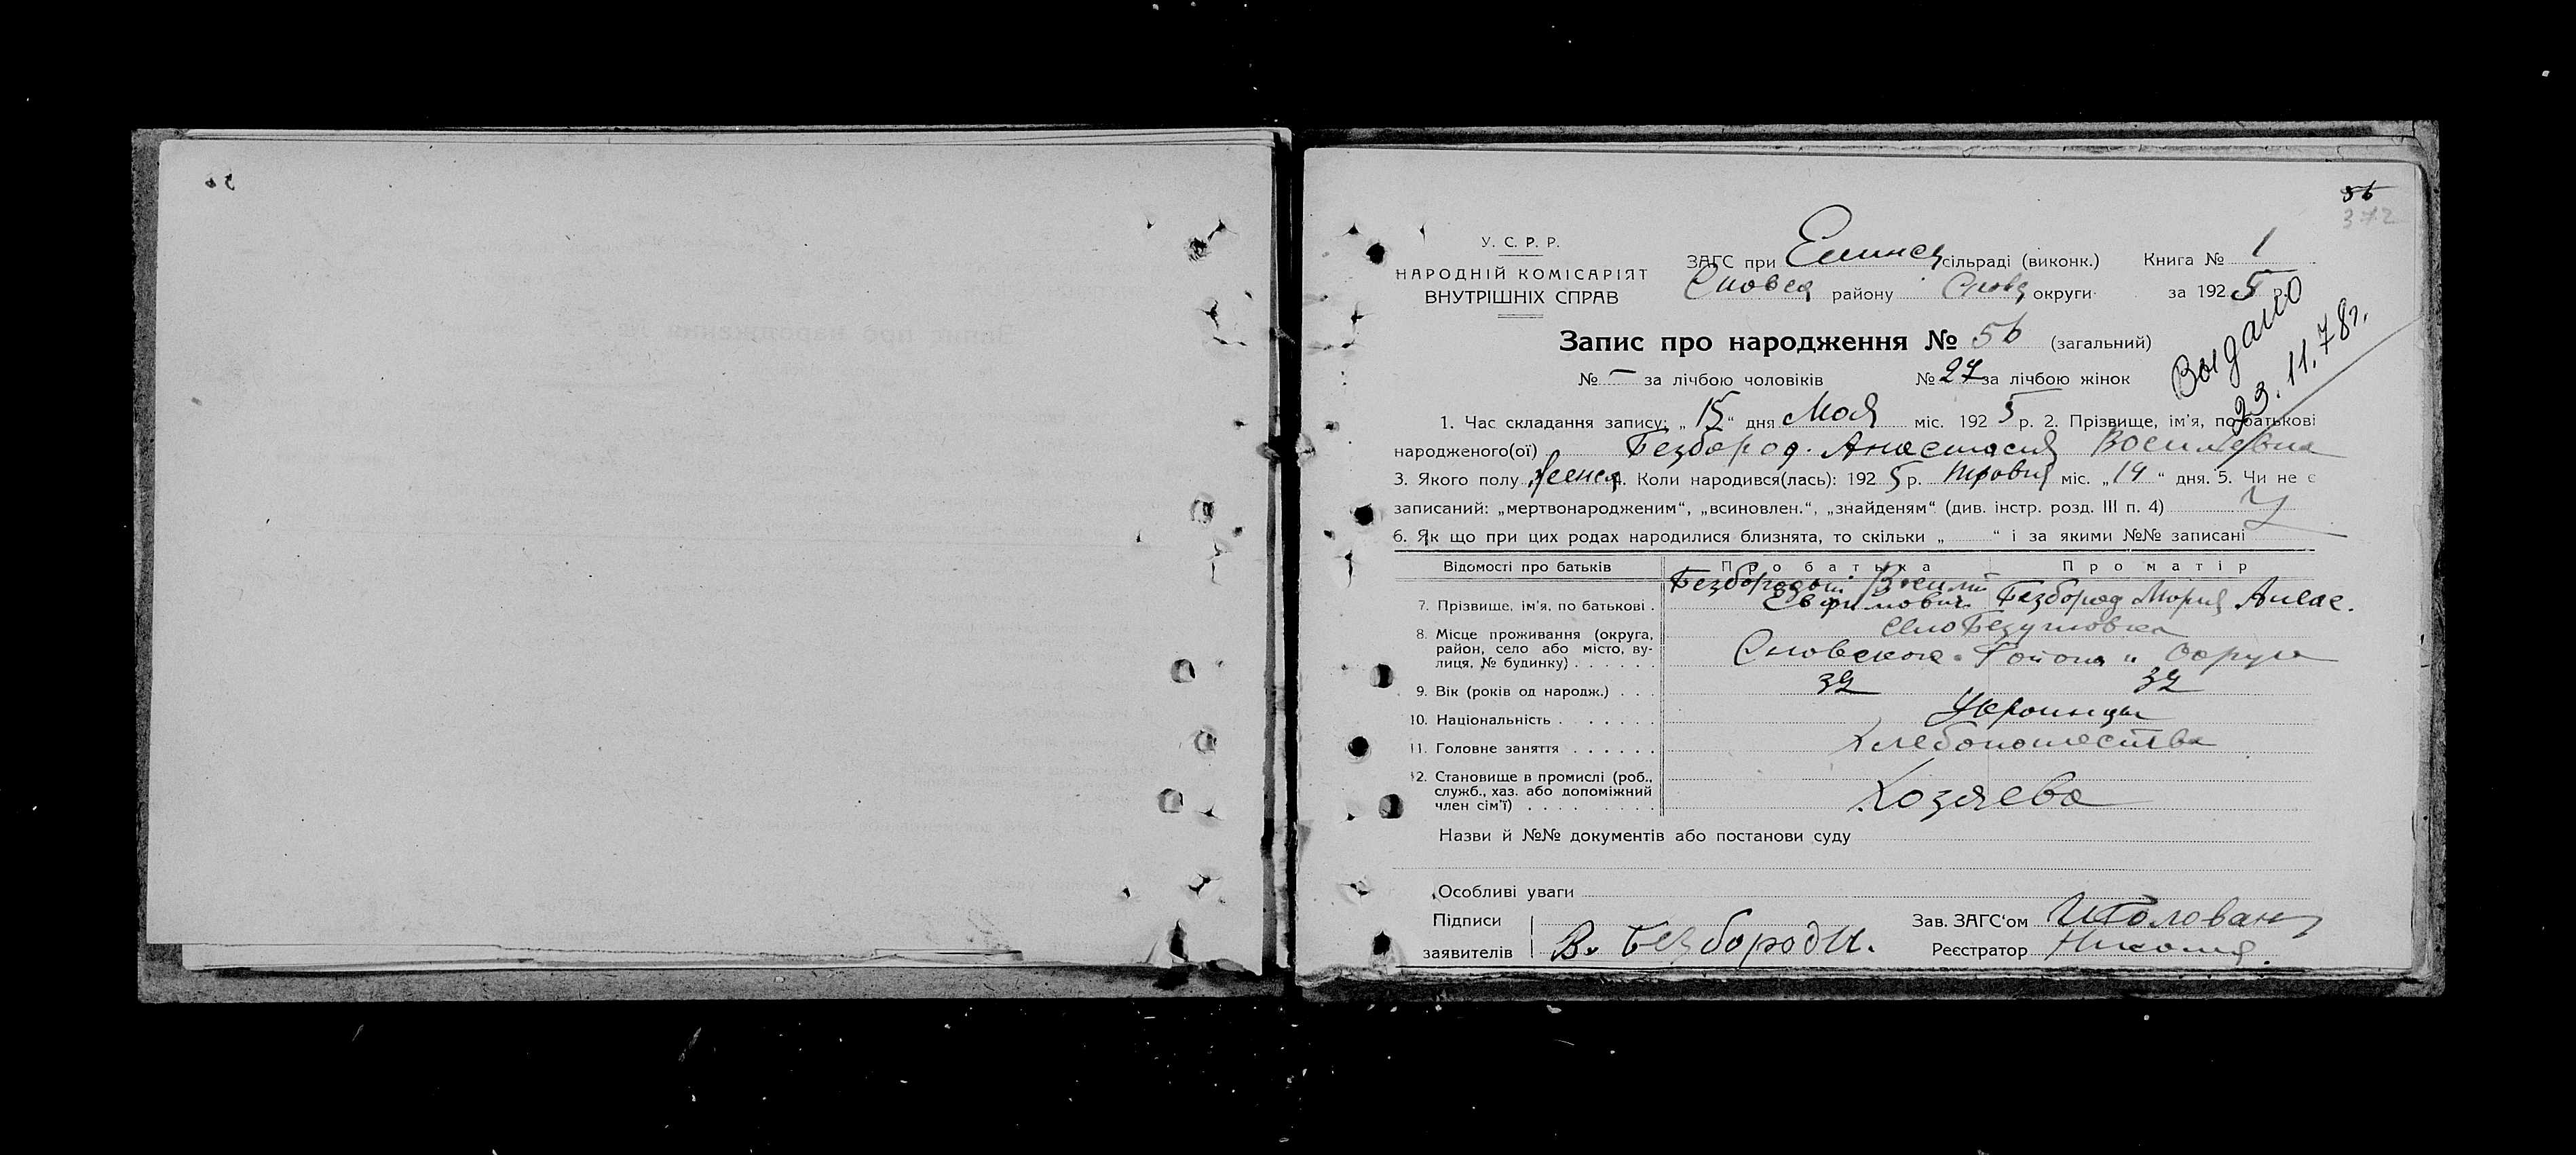 56
372
У. С. Р. Р.
НАРОДНІЙ КОМІСАРІЯТ
ВНУТРІШНІХ СПРАВ
ЗАГС при сільраді (виконк.) Книга № 1
району округи за 1925 р.
Выдано
23.11.78г.
Запис про народження № 56 (загальний)
№ — за лічбою чоловіків № 27 за лічбою жінок
1. Час складання запису: „15“ дня Мая міс. 1925 р. 2. Прізвище, ім'я, по батькові
народженого(ої) Безбород. Анастасия Василевна
3. Якого полу женск 4. Коли народився(лась): 1925 р. міс. „14“ дня. 5. Чи не є
записаний: „мертвонародженим“, „всиновлен.“, „знайденям“ (див. інстр. розд. III п. 4)
6. Як що при цих родах народилися близнята, то скільки „ “ і за якими №№ записані
Відомості про батьків Про батька Про матір
7. Прізвище, ім'я, по батькові . Безбородый Василий Евфимович Безбород Мория
8. Місце проживання (округа, район, село або місто, вулиця, № будинку) . . . . . . село
Сновского Района и Округа
9. Вік (років од народж.) . . .
10. Національність . . . . . . Украинцы
11. Головне заняття . . . . . . Хлебопашества
12. Становище в промислі (роб.,
служб., хаз. або допоміжний
член сім'ї) . . . . . . . . . Хозяева
Назви й №№ документів або постанови суду
Особливі уваги
Підписи Зав. ЗАГС'ом
заявителів В. Безборода. Реєстратор